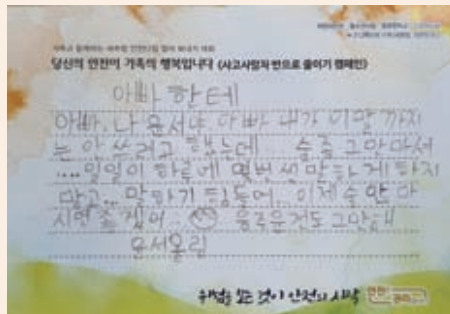 당신의 안전이 가족의 행복입니다 (사고사망자 반으로 줄이기 캠페인)
아빠한테
아빠, 나 윤서야 아빠 내가 이말까지
는 안 쓰려고 했는데 술좀 그만마셔
.... 일일이 하루에 몇번씩 말하게 하지
말고.. 말하기 힘들어.. 이제 술 안 마
시면 좋겠어.. 음주운전도 그만해
윤서올림
위험을 보는 것이 안전의 시작